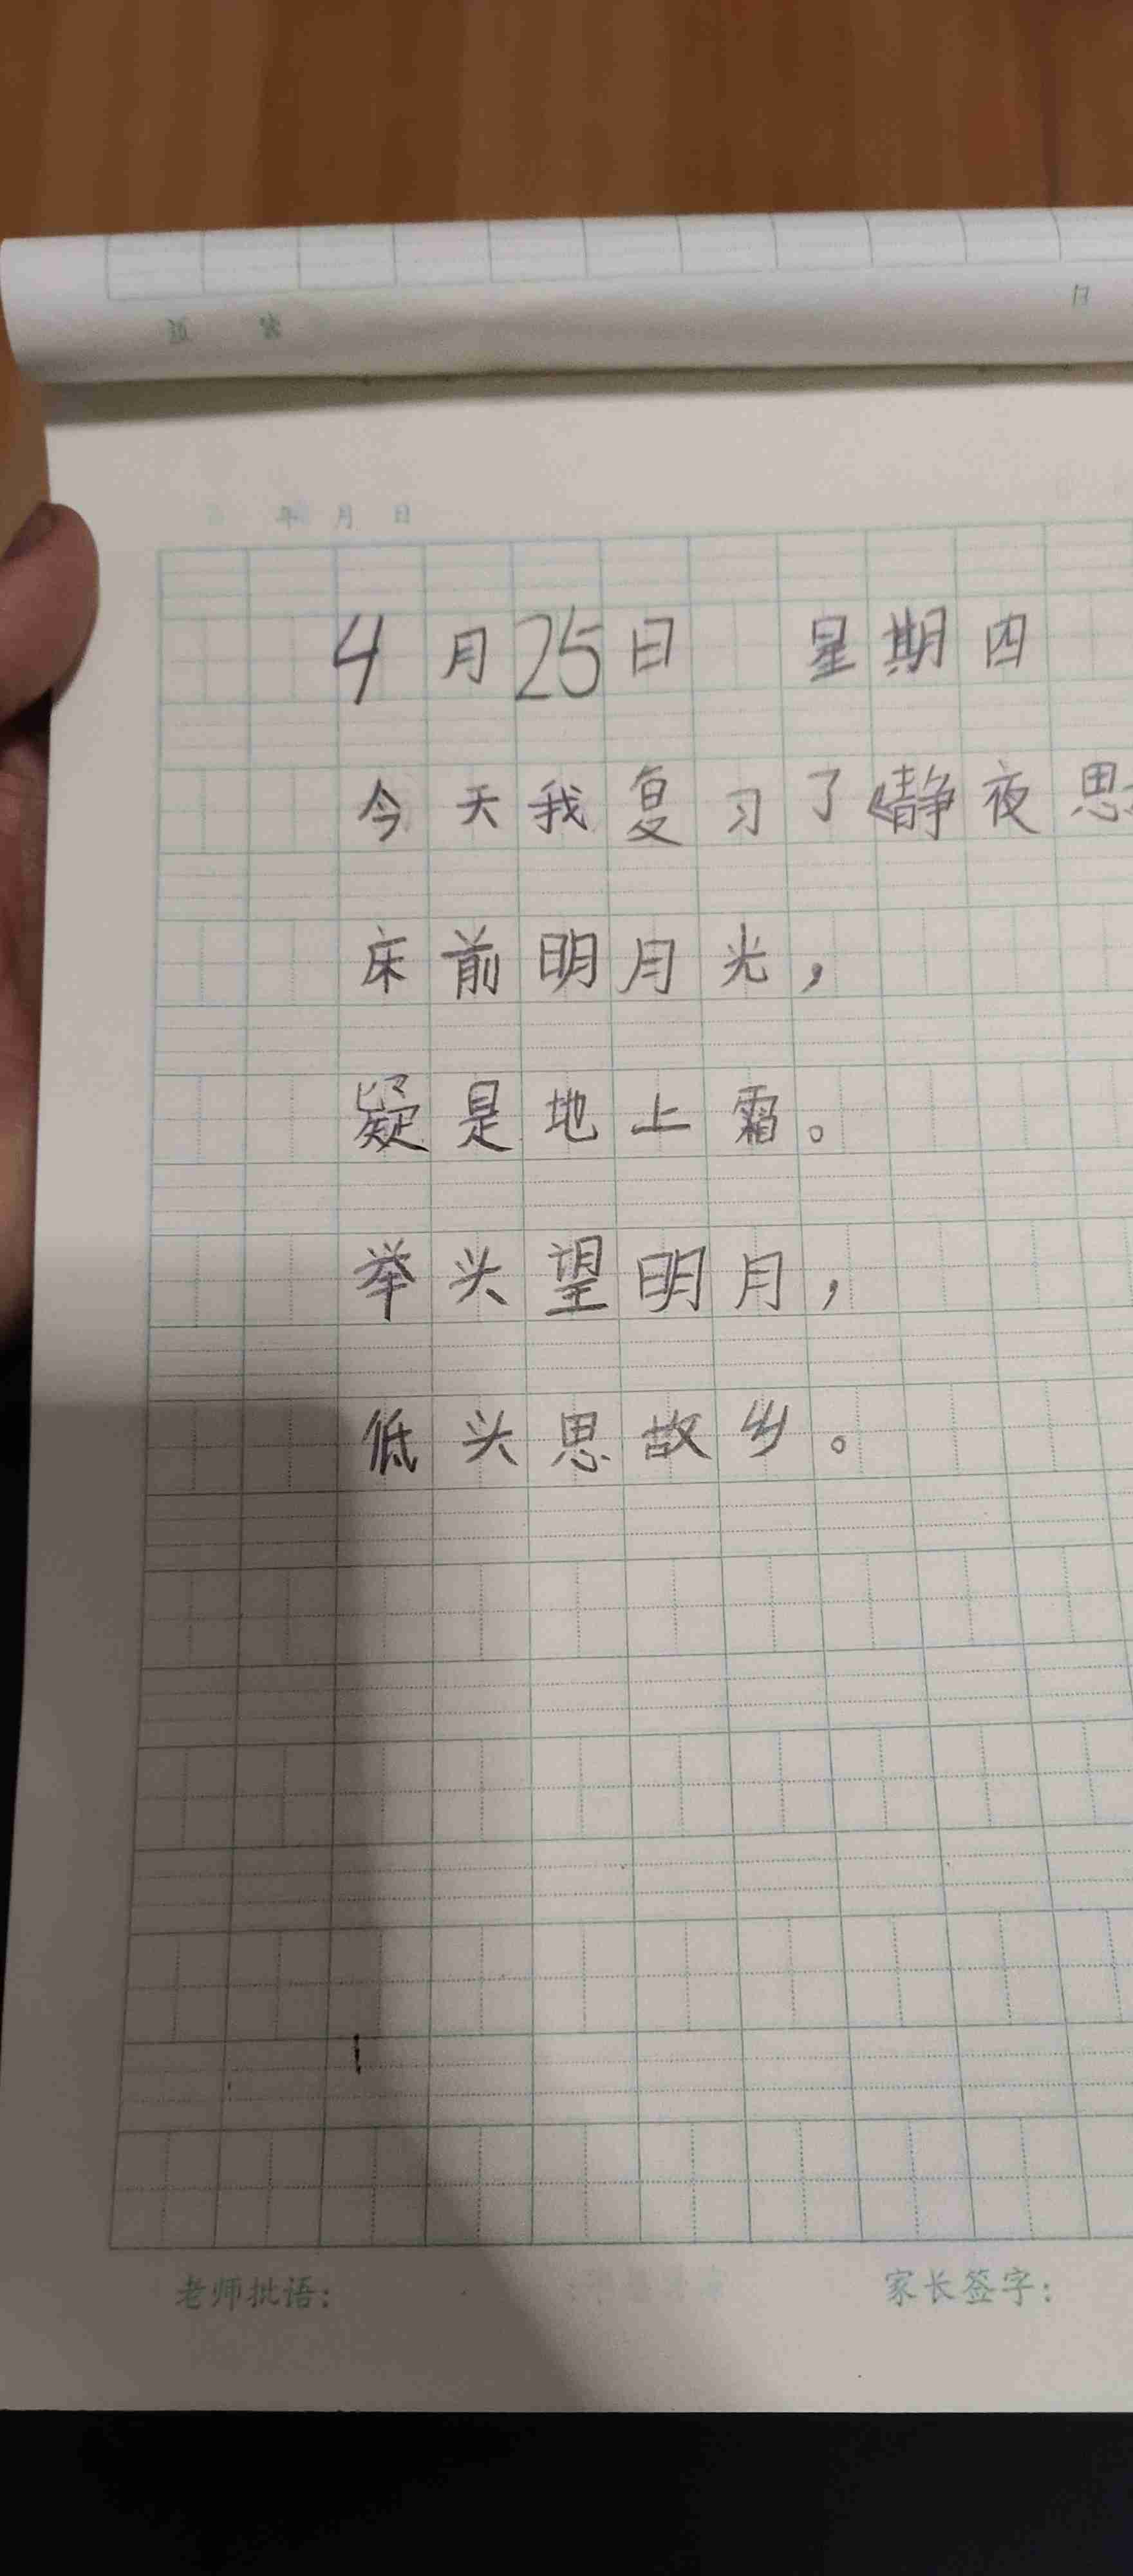 日
年 月 日
4月25日 星期四
今天我复习了《静夜思
床前明月光，
疑是地上霜。
举头望明月，
低头思故乡。
老师批语： 家长签字：